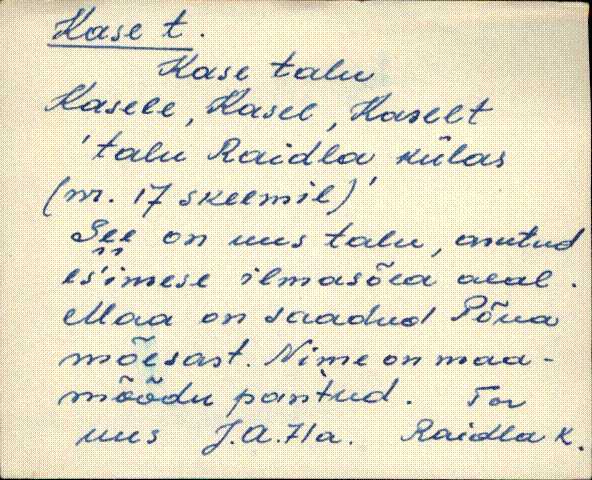 Kase t.
Kase talu
Kasele, Kasel, Kaselt
'talu Raidla külas
(nr. 17 skeemil)'
See on uus talu, asutud
eśimese ilmasõea aeal.
Maa on saadud Põua
mõesast. Nime on maa-
mõõdu pantud. Tor
uus J.A.71a. Raidla k.